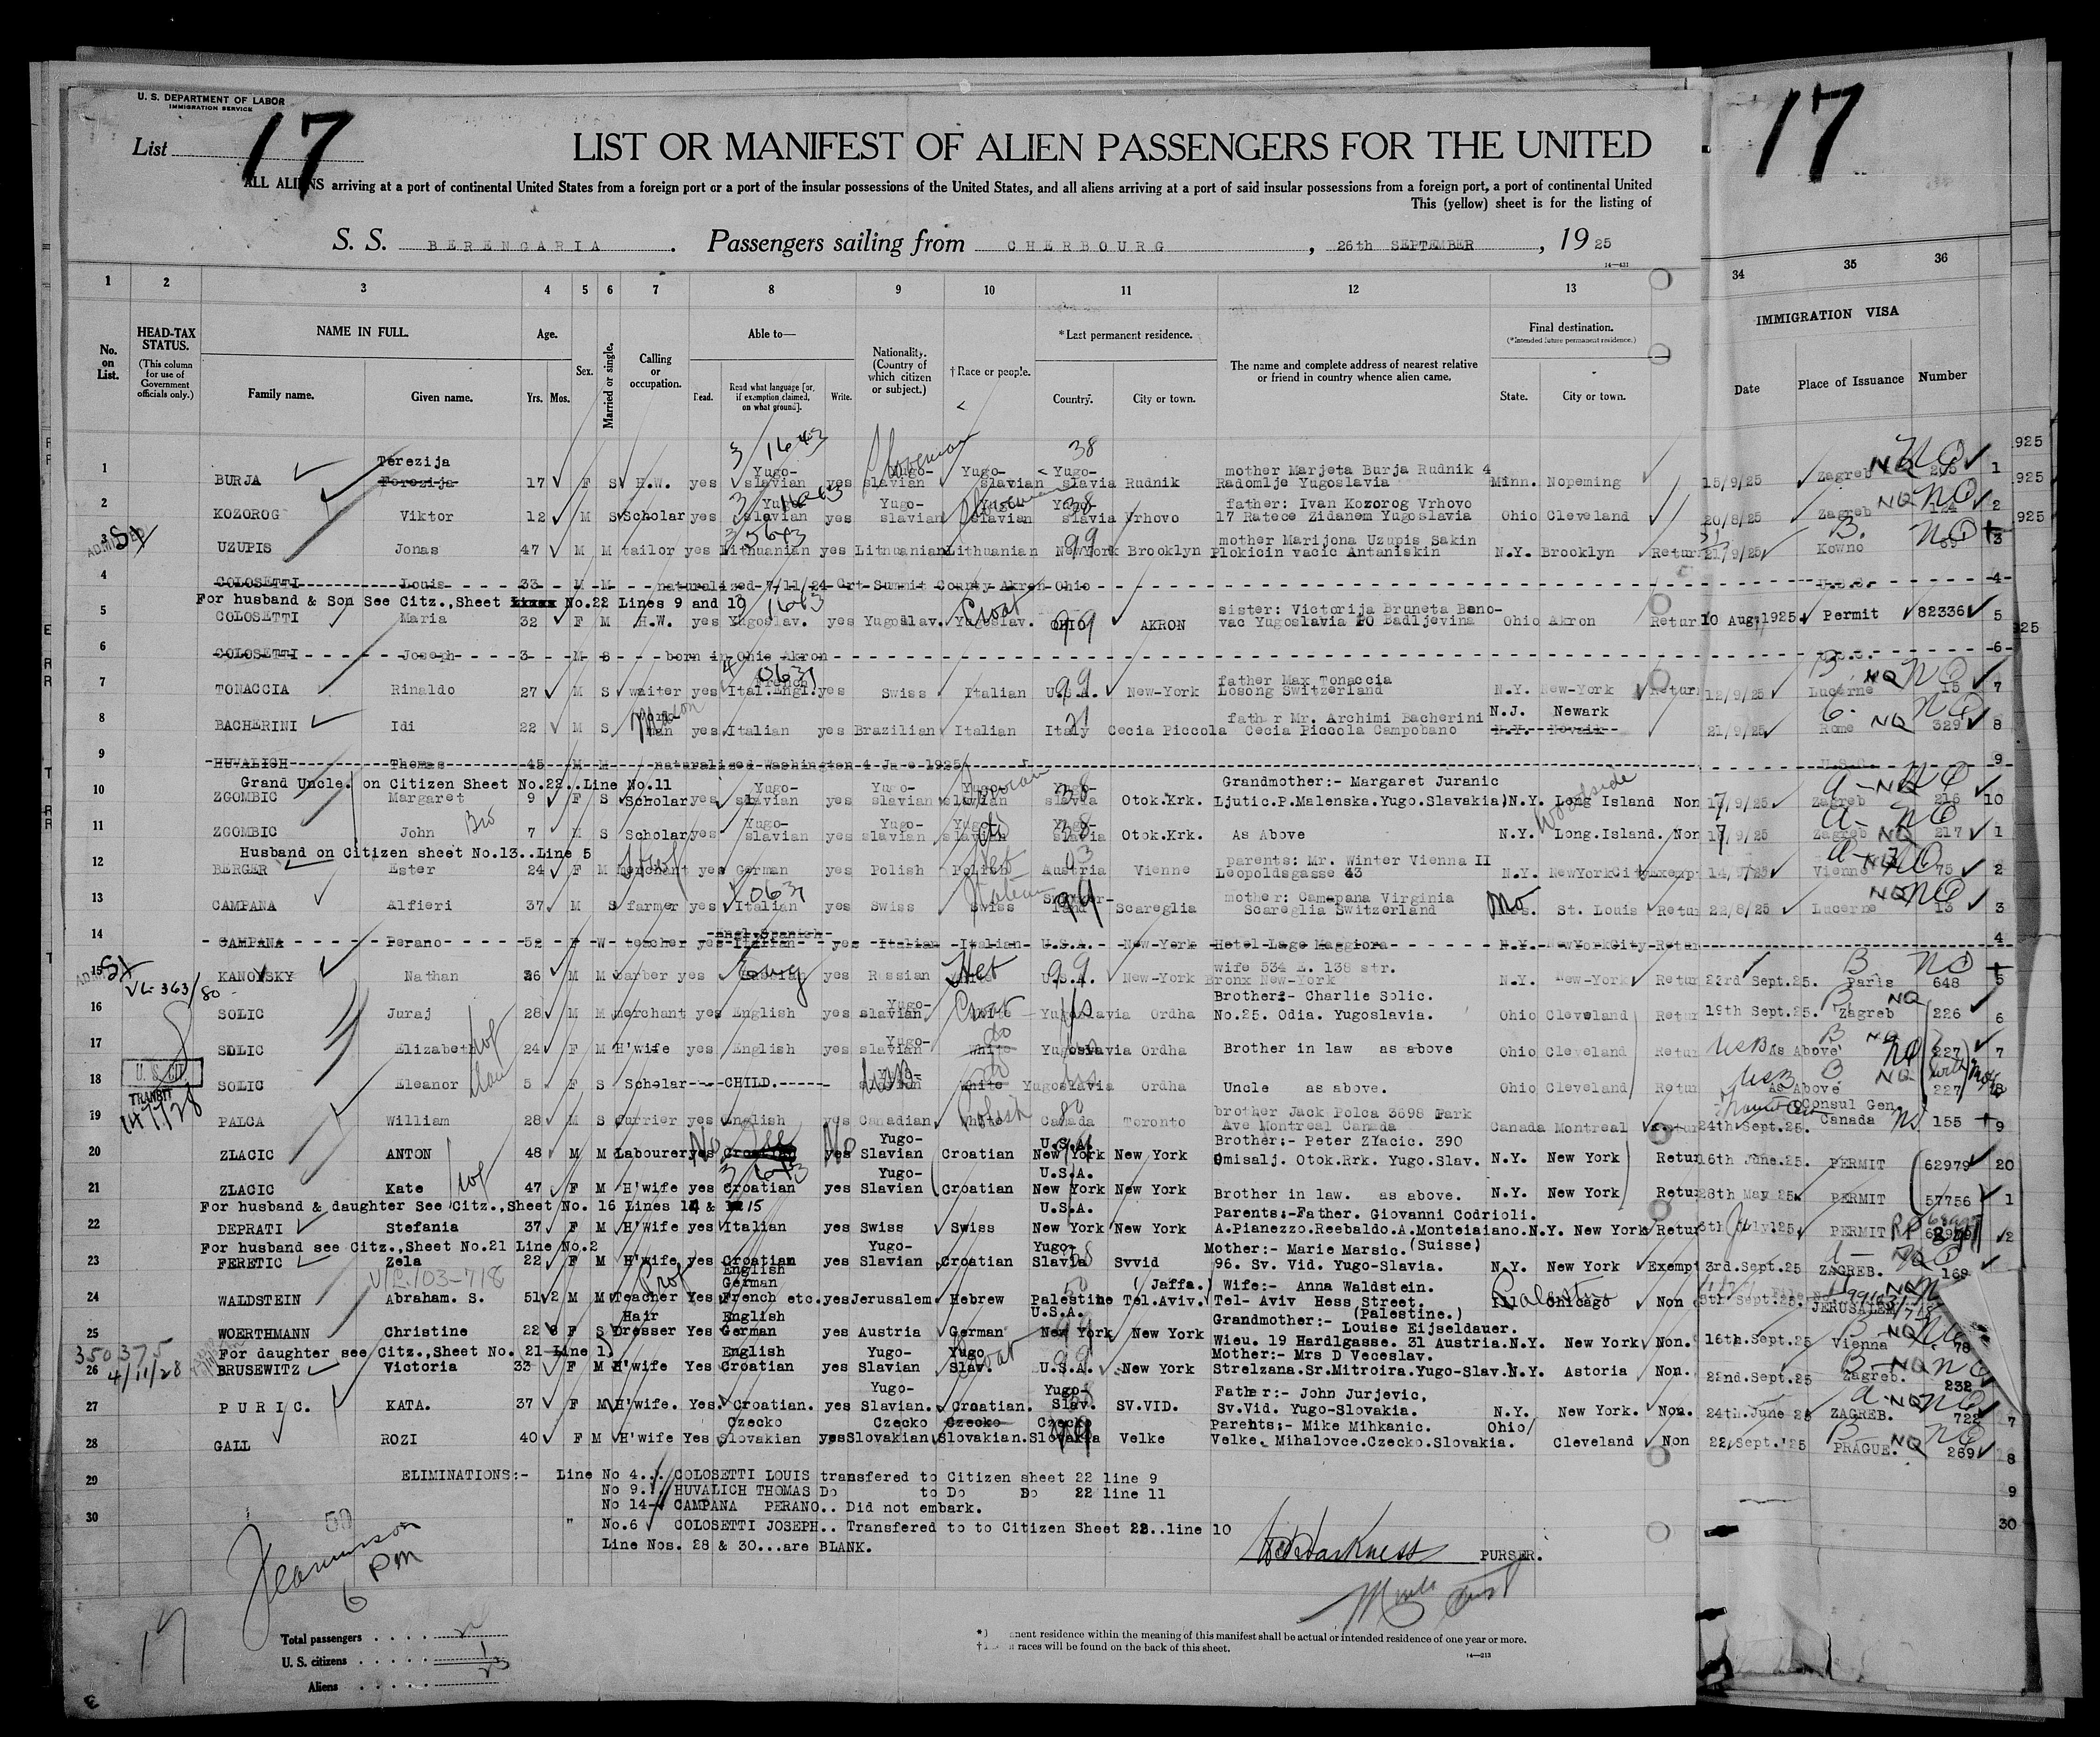 U. S. DEPARTMENT OF LABOR
IMMIGRATION SERVICE
List 17
17
LIST OR MANIFEST OF ALIEN PASSENGERS FOR THE UNITED
ALL ALIENS arriving at a port of continental United States from a foreign port or a port of the insular possessions of the United States, and all aliens arriving at a port of said insular possessions from a foreign port, a port of continental United
This (yellow) sheet is for the listing of
S. S. BERENGARIA. Passengers sailing from CHERBOURG, 26th SEPTEMBER, 19 25
14—431
1 2 3 4 5 6 7 8 9 10 11 12 13 34 35 36
No. on List. HEAD-TAX STATUS. (This column for use of Government officials only.) NAME IN FULL. Family name. Given name. Age. Yrs. Mos. Sex. Married or single. Calling or occupation. Able to— Read. Read what language [or, if exemption claimed, on what ground]. Write. Nationality. (Country of which citizen or subject.) †Race or people. *Last permanent residence. Country. City or town. The name and complete address of nearest relative or friend in country whence alien came. Final destination. (*Intended future permanent residence.) State. City or town. IMMIGRATION VISA Date Place of Issuance Number
1 BURJA Terezija 17 F S H.W. yes Yugo-slavian yes Yugo-slavian Yugo-slavian Yugo-slavia Rudnik mother Marjeta Burja Rudnik 4 Radomlje Yugoslavia Minn. Nopeming 15/9/25 Zagreb NQ 1
2 KOZOROG Viktor 12 M S Scholar yes Yugo-slavian yes Yugo-slavian Yugo-slavian Yugo-slavia Vrhovo father: Ivan Kozorog Vrhovo 17 Ratece Zidanem Yugoslavia Ohio Cleveland 20/8/25 Zagreb NQ 124 2
3 UZUPIS Jonas 47 M M tailor yes Lithuanian yes Lithuanian Lithuanian NewYork Brooklyn mother Marijona Uzupis Sakin Plokicin vacic Antaniskin N.Y. Brooklyn Retur 21/9/25 Kowno 3
4 COLOSETTI Louis 33 M M naturalized 7/11/24 Crt Summit County Akron Ohio U.S.S. 4
For husband & Son See Citz.,Sheet No.22 Lines 9 and 10
5 COLOSETTI Maria 32 F M H.W. yes Yugoslav. yes Yugoslav. Yugoslav. OHIO AKRON sister: Victorija Bruneta Bano-vac Yugoslavia PO Badljevina Ohio Akron Retur 10 Aug.1925 Permit 82336 5
6 COLOSETTI Joseph 3 M S born in Ohio Akron 6
7 TONACCIA Rinaldo 27 M S waiter yes French Ital.Engl. yes Swiss Italian U.S.A. New-York father Max Tonaccia Losong Switzerland N.Y. New-York Retur 12/9/25 Lucerne NQ 15 7
8 BACHERINI Idi 22 M S Mason yes Italian yes Brazilian Italian Italy Cecia Piccola father Mr. Archimi Bacherini Cecia Piccola Campobano N.J. Newark 21/9/25 Rome NQ 329 8
9 HUVALICH Thomas 45 M M naturalized Washington 4 June 1925 U.S.S. 9
Grand Uncle. on Citizen Sheet No.22..Line No.11
10 ZGOMBIC Margaret 9 F S Scholar yes Yugo-slavian yes Yugo-slavian Yugo-slavian Yugo-slavia Otok.Krk. Grandmother:- Margaret Juranic Ljutic.P.Malenska.Yugo.Slavakia N.Y. Long Island Woodside Non 17/9/25 Zagreb NQ 216 10
11 ZGOMBIC John Bro 7 M S Scholar yes Yugo-slavian yes Yugo-slavian Yugo-slavian Yugo-slavia Otok.Krk. As Above N.Y. Long.Island. Non 17/9/25 Zagreb NQ 217 1
Husband on Citizen sheet No.13..Line 5
12 BERGER Ester 24 F M merchant yes German yes Polish Polish Austria Vienne parents: Mr. Winter Vienna II Leopoldsgasse 43 N.Y. NewYorkCity Exemp 14/9/25 Vienne NQ 75 2
13 CAMPANA Alfieri 37 M S farmer yes Italian yes Swiss Swiss Scareglia mother: Camapana Virginia Scareglia Switzerland Mo St. Louis Retur 22/8/25 Lucerne NQ 13 3
14 CAMPANA Perano 52 F W teacher yes Engl.Spanish Italian yes Italian Italian U.S.A. New-York Hotel Lago Maggiora N.Y. NewYorkCity Retur 4
15 KANOVSKY Nathan 36 M M barber yes yes Russian Heb U.S.A. New-York wife 534 E. 138 str. Bronx New-York N.Y. New-York Retur 23rd Sept.25. Paris 648 5
VL 363/80
16 SOLIC Juraj 28 M M merchant yes English yes Yugo-slavian Croat Yugoslavia Ordha Brother:- Charlie Solic. No.25. Odia. Yugoslavia. Ohio Cleveland Retur 19th Sept.25. Zagreb NQ 226 6
17 SOLIC Elizabeth Wf 24 F M H'wife yes English yes Yugo-slavian White Yugoslavia Ordha Brother in law as above Ohio Cleveland Retur As Above NQ 227 7
18 SOLIC Eleanor 5 F S Scholar CHILD. slavian White Yugoslavia Ordha Uncle as above. Ohio Cleveland Retur USB As Above NQ 227 8
U. S. CIT
TRANSIT
19 PALCA William 28 M S Currier yes English yes Canadian Polish Canada Toronto brother Jack Polca 3698 Park Ave Montreal Canada Canada Montreal 24th Sept.25. Consul Gen. Canada 155 9
20 ZLACIC ANTON 48 M M Labourer yes No Croatian yes No Yugo-Slavian Croatian U.S.A. New York New York Brother:- Peter Zlacic. 390 Omisalj. Otok.Rrk. Yugo.Slav. N.Y. New York Retur 16th June.25. PERMIT 62979 20
21 ZLACIC Kate Wf 47 F M H'wife yes Croatian yes Yugo-Slavian Croatian U.S.A. New York New York Brother in law. as above. N.Y. New York Retur 28th May.25 PERMIT 57756 1
For husband & daughter See Citz.,Sheet No. 16 Lines 14 & 15
22 DEPRATI Stefania 37 F M H'Wife yes Italian yes Swiss Swiss U.S.A. New York New York Parents:-Father. Giovanni Codrioli. A.Pianezzo.Reebaldo.A.Monteiaiano. (Suisse) N.Y. New York Retur 6th July.25 PERMIT 2
For husband see Citz.,Sheet No.21 Line No.2
23 FERETIC Zela 22 F M H'wife yes Croatian yes Yugo-Slavian Croatian Yugo-Slavia Svvid Mother:- Marie Marsic. 96. Sv. Vid. Yugo-Slavia. N.Y. New York Exempt 3rd.Sept.25 ZAGREB. 168
V/L.103-718
24 WALDSTEIN Abraham. S. 51 2 M M Teacher Yes English German French etc. yes Jerusalem Hebrew Palestine (Jaffa.) Tel.Aviv. Wife:- Anna Waldstein. Tel- Aviv Hess Street. (Palestine.) Chicago Palestine Non 5th Sept.25. JERUSALEM NQ
25 WOERTHMANN Christine 22 8 F S Hair Dresser Yes English German yes Austria German U.S.A. New York New York Grandmother:- Louise Eijseldauer. Wieu. 19 Hardlgasse. 31 Austria. N.Y. New York Non. 16th.Sept.25 Vienna NQ 78
For daughter see Citz.,Sheet No. 21 Line 1)
350375
4/11/28
26 BRUSEWITZ Victoria 33 F M H'wife Yes English Croatian yes Yugo-Slavian Yugo Slav. U.S.A. New York Mother:- Mrs D Veceslav. Strelzana.Sr.Mitroira.Yugo-Slav. N.Y. Astoria Non. 22nd.Sept.25 Zagreb. NQ 232
27 PURIC. KATA. 37 F M H'wife. Yes. Croatian. yes Yugo-Slavian. Croatian. Yugo-Slav. SV.VID. Father:- John Jurjevic, Sv.Vid. Yugo-Slovakia. N.Y. New York. Non. 24th.June 25 ZAGREB. NQ 722 7
28 GALL ROZI 40 F M H'wife Yes Czecko Slovakian yes Czecko Slovakian Czecko Slovakian. Czecko Slovakia Velke Parents:- Mike Mihkanic. Velke. Mihalovce.Czecko.Slovakia. Ohio/ Cleveland Non 22 Sept.'25 PRAGUE. NQ 269 8
29 ELIMINATIONS:- Line No 4... COLOSETTI LOUIS transfered to Citizen sheet 22 line 9
No 9.. HUVALICH THOMAS Do to Do Do 22 line 11 9
30 No 14- CAMPANA PERANO.. Did not embark.
" No.6 COLOSETTI JOSEPH.. Transfered to to Citizen Sheet 22..line 10 30
Line Nos. 28 & 30...are BLANK.
PURSER.
6 PM
17
Total passengers
U. S. citizens
Aliens
nent residence within the meaning of this manifest shall be actual or intended residence of one year or more.
races will be found on the back of this sheet.
14—213